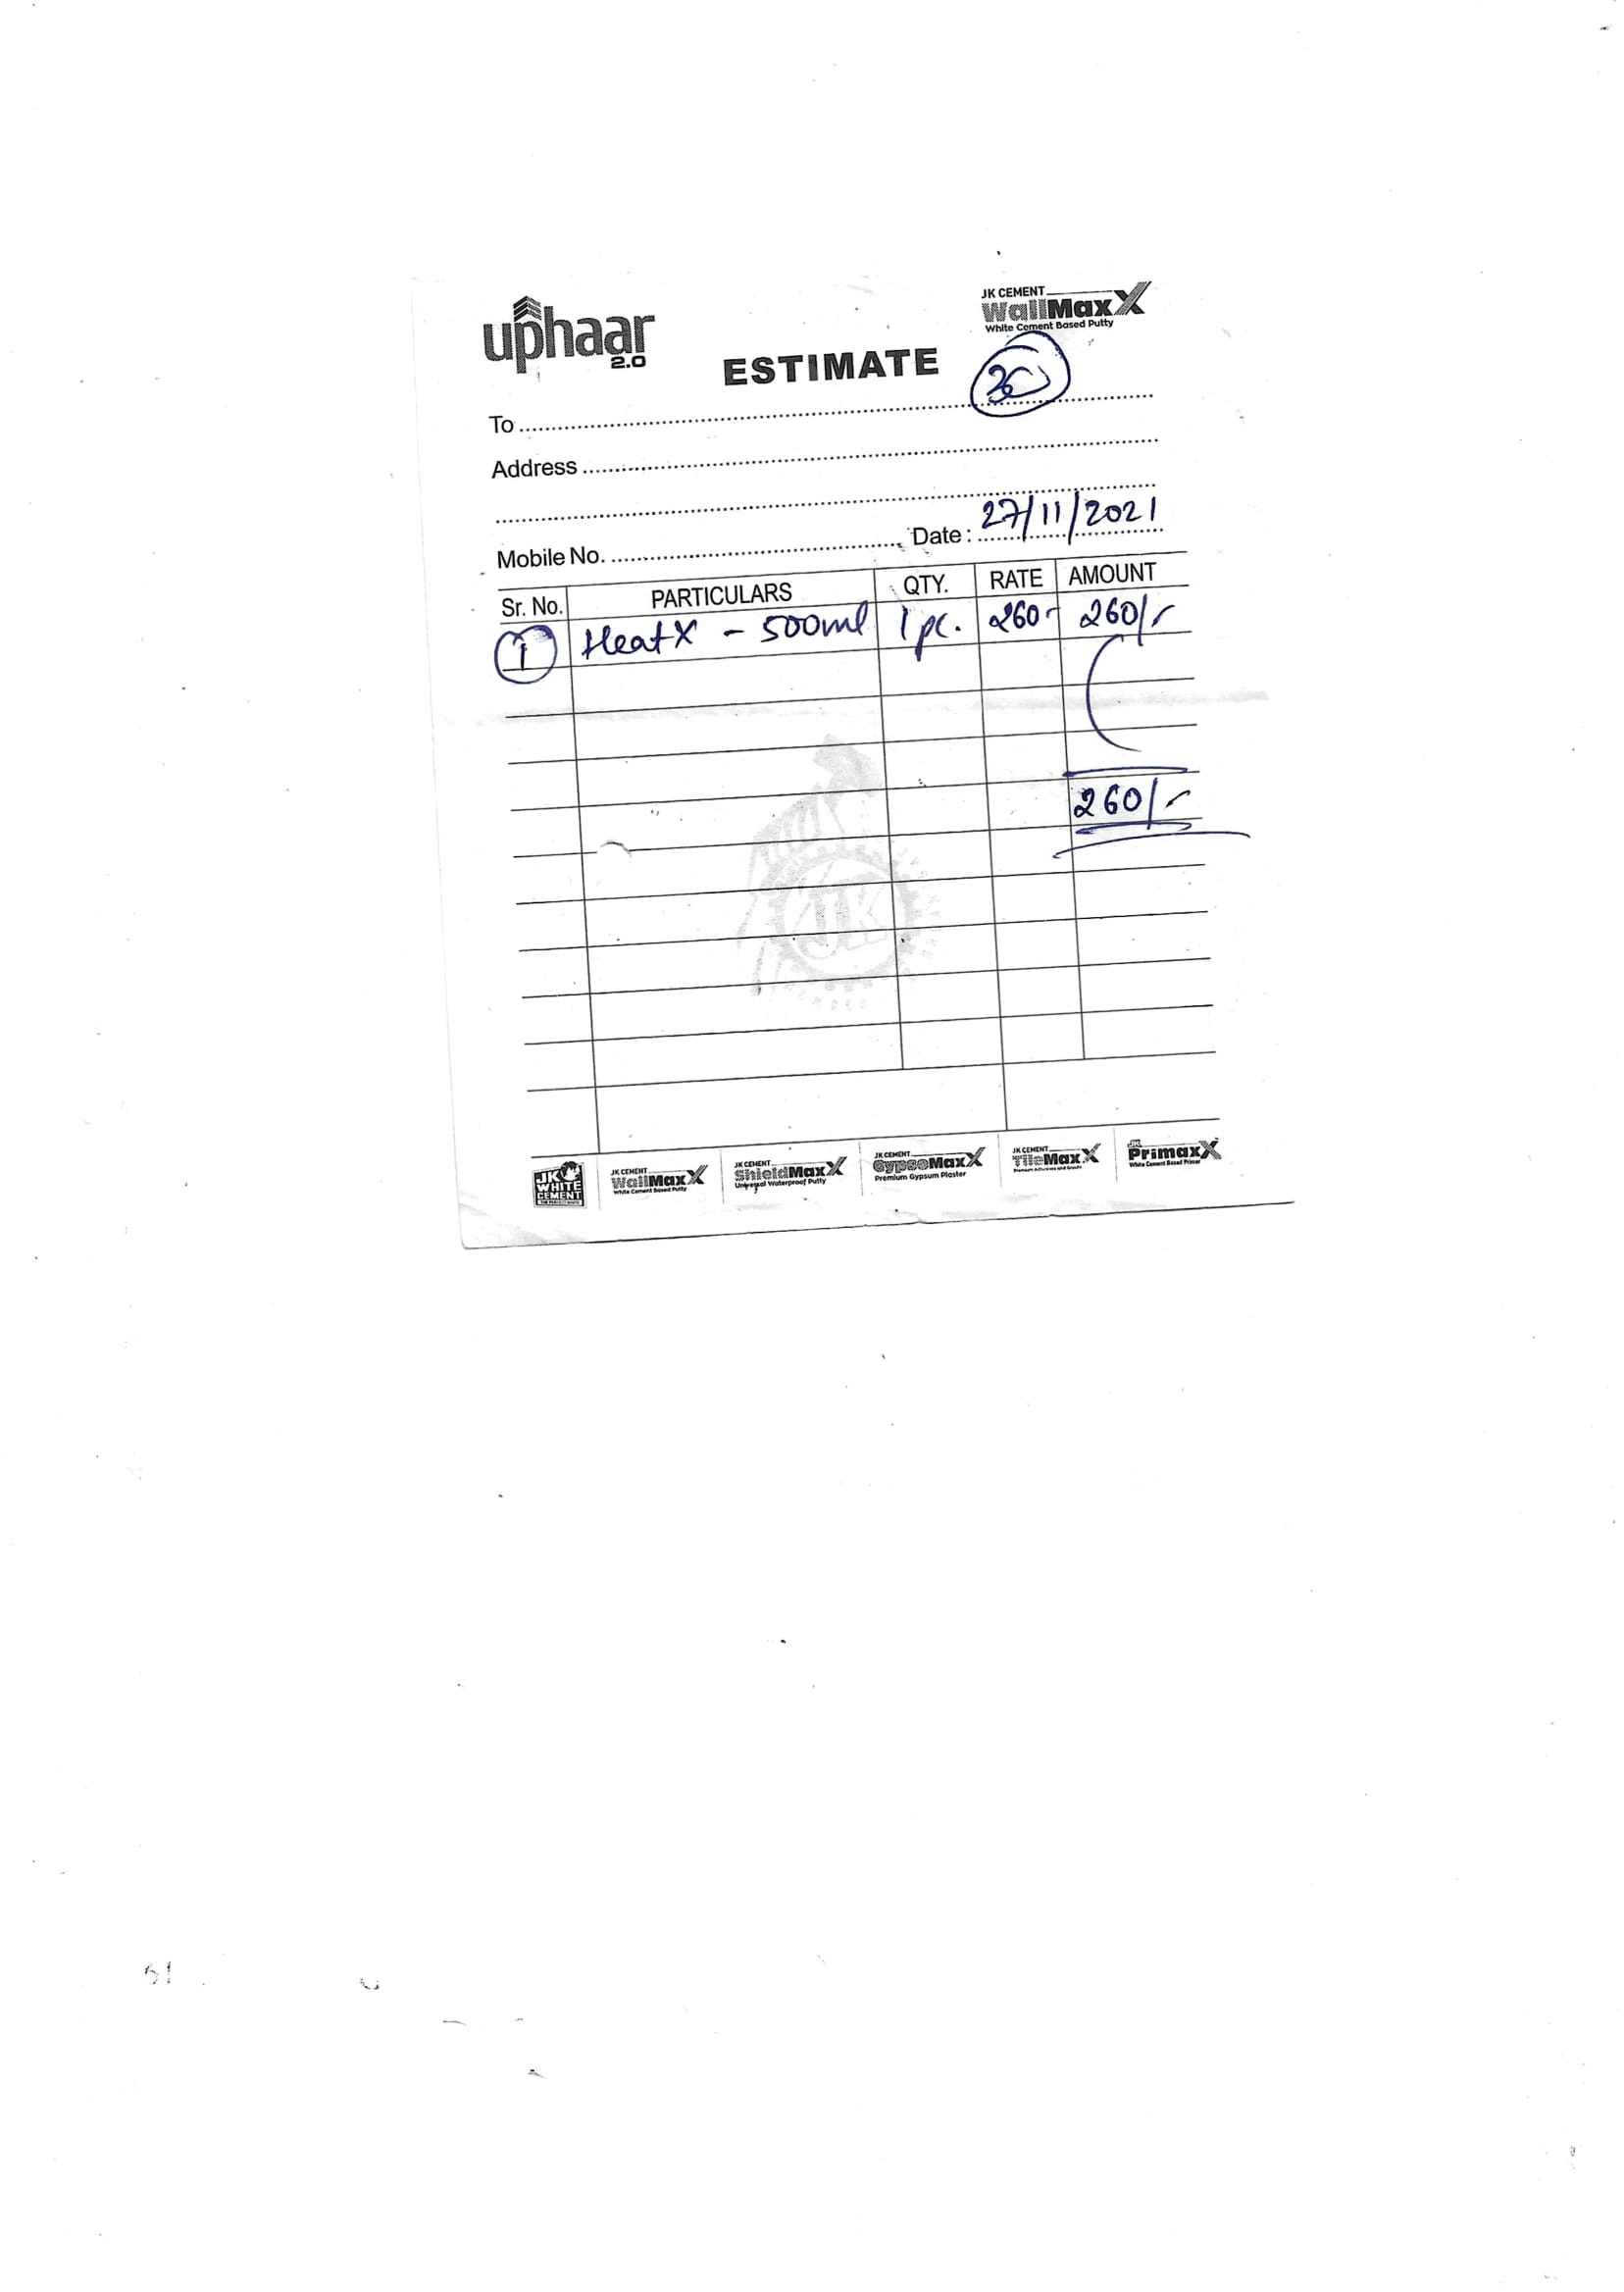 uphaar
2.0
JK CEMENT
WallMaxX
White Cement Based Putty
ESTIMATE
To
Address
Mobile No. Date : 27/11/2021
Sr. No. PARTICULARS QTY. RATE AMOUNT
1 HeatX - 500ml 1 pc. 260- 260/-
260/-
JK
JK WHITE CEMENT
JK CEMENT WallMaxX White Cement Based Putty
JK CEMENT ShieldMaxX Universal Waterproof Putty
JK CEMENT GypsoMaxX Premium Gypsum Plaster
JK CEMENT TileMaxX
JK PrimaxX White Cement Based Primer